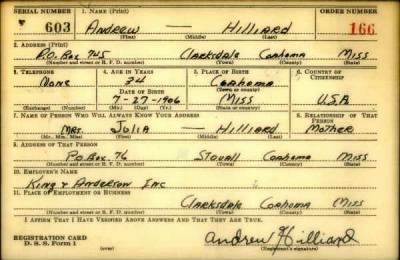 SERIAL NUMBER 1. NAME (Print) ORDER NUMBER
603 ANDREW — HILLIARD 166
(First) (Middle) (Last)
2. ADDRESS (Print)
P.O. Box 745 Clarksdale Coahoma Miss
(Number and street or R. F. D. number) (Town) (County) (State)
3. TELEPHONE 4. AGE IN YEARS 5. PLACE OF BIRTH 6. COUNTRY OF CITIZENSHIP
None 34 Coahoma
DATE OF BIRTH (Town or county)
7-27-1906 Miss U.S.A.
(Exchange) (Number) (Mo.) (Day) (Yr.) (State or country)
7. NAME OF PERSON WHO WILL ALWAYS KNOW YOUR ADDRESS 8. RELATIONSHIP OF THAT PERSON
Mrs. Julia — Hilliard Mother
(Mr., Mrs., Miss) (First) (Middle) (Last)
9. ADDRESS OF THAT PERSON
P.O. Box 76 Stovall Coahoma Miss
(Number and street or R. F. D. number) (Town) (County) (State)
10. EMPLOYER'S NAME
King & Anderson Inc
11. PLACE OF EMPLOYMENT OR BUSINESS
Clarksdale Coahoma Miss
(Number and street or R. F. D. number) (Town) (County) (State)
I AFFIRM THAT I HAVE VERIFIED ABOVE ANSWERS AND THAT THEY ARE TRUE.
REGISTRATION CARD
D. S. S. Form 1 (over) Andrew Hilliard
(Registrant's signature)